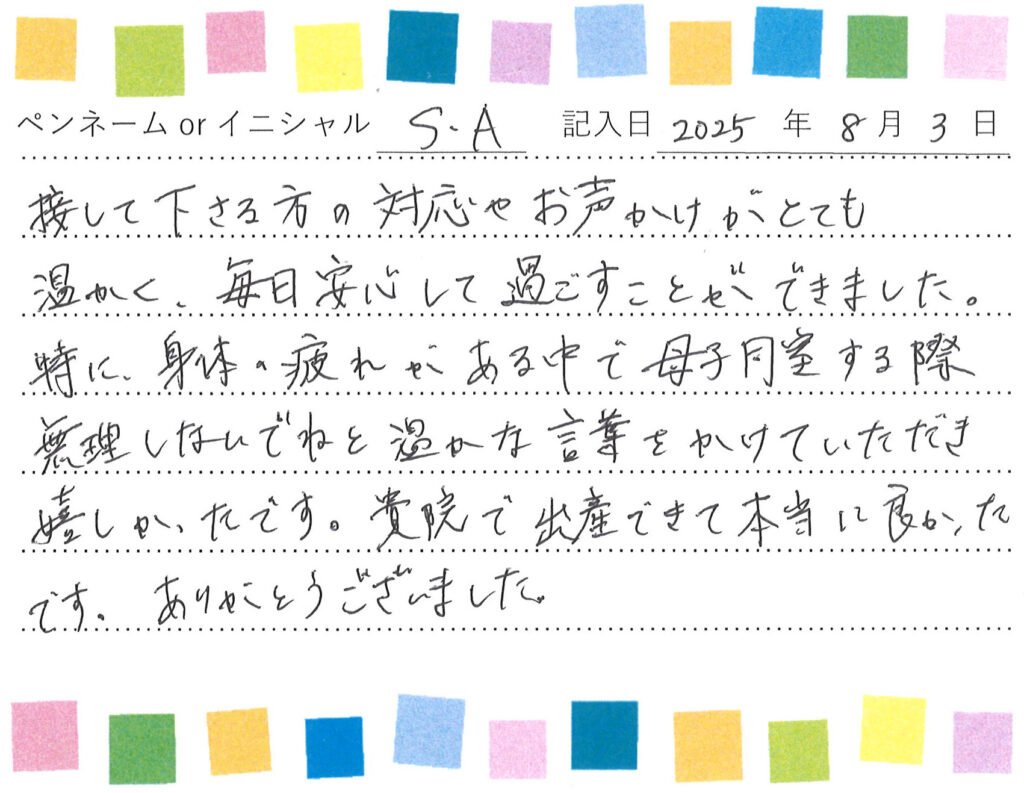 ペンネーム or イニシャル S.A 記入日 2025 年 8 月 3 日
接して下さる方の対応やお声かけがとても
温かく、毎日安心して過ごすことができました。
特に、身体の疲れがある中で母子同室する際
無理しないでねと温かな言葉をかけていただき
嬉しかったです。貴院で出産できて本当に良かった
です。ありがとうございました。